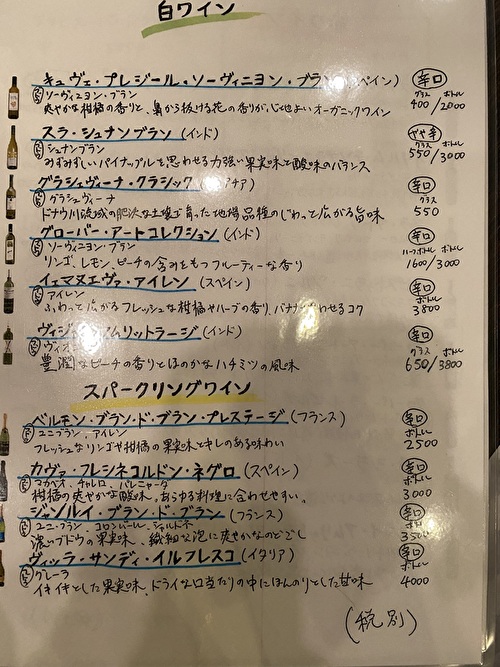 白ワイン
キュヴェ・プレジール・ソーヴィニヨン・ブラン(スペイン) 辛口
ソーヴィニヨン・ブラン グラス ボトル
爽やかな柑橘の香りと、鼻から抜ける花の香りが心地よいオーガニックワイン 400/2000
スラ・シュナンブラン(インド) やや辛
シュナンブラン グラス ボトル
みずみずしいパイナップルを思わせる力強い果実味と酸味のバランス 550/3000
グラシェヴィーナ・クラシック 辛口
グラシェヴィーナ グラス
ドナウ川流域の肥沃な土壌で育った地場品種のじわっと広がる旨味 550
グローバー・アートコレクション(インド) 辛口
ソーヴィニヨン・ブラン ハーフボトル ボトル
リンゴ、レモン、ピーチの含みをもつフルーティーな香り 1600/3000
イェマヌエヴァ・アイレン(スペイン) 辛口
アイレン ボトル
ふわっと広がるフレッシュな柑橘やハーブの香り、バナナ わせるコク 3800
ヴィジ ムリットラージ(インド) 辛口
グラス ボトル
豊潤なピーチの香りとほのかなハチミツの風味 650/3800
スパークリングワイン
ベルモン・ブラン・ド・ブラン・プレステージ(フランス) 辛口
ユニブラン、アイレン ボトル
フレッシュなリンゴや柑橘の果実味とキレのある味わい 2500
カヴァ・フレシネコルドン・ネグロ(スペイン) 辛口
マカベオ、チャレロ、パレリャーダ ボトル
柑橘の爽やかな酸味。あらゆる料理に合わせやすい。 3000
ジャンルイ・ブラン・ド・ブラン(フランス) 辛口
ユニ・ブラン、コロンバール、シャルドネ ボトル
濃いブドウの果実味、繊細な泡に爽やかなのどごし 3500
ヴィッラ・サンディ・イルフレスコ(イタリア) 辛口
グレーラ ボトル
イキイキとした果実味、ドライな口当たりの中にほんのりとした甘味 4000
(税別)